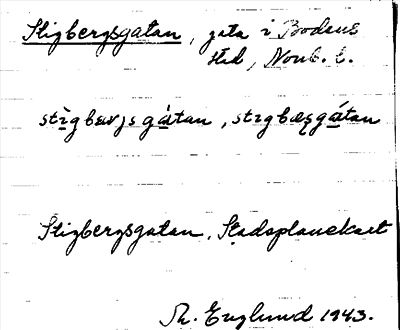 Stigbergsgatan, gata i Bodens
stad, Norrb. l.
stìgbærjs gàtan, stɪgbæʂgátan
Stigbergsgatan, Stadsplanekart
Th. Englund 1943.